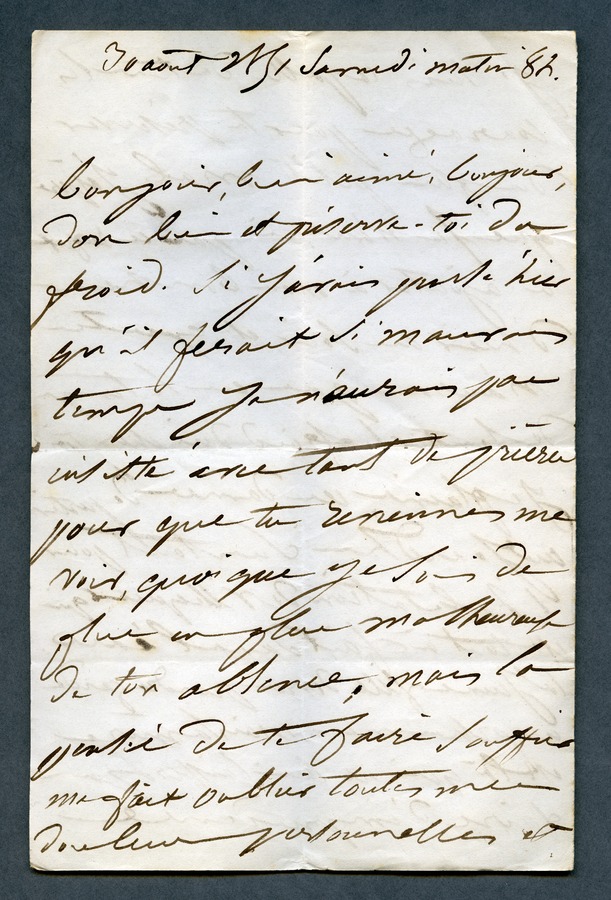 30 aout 1851 Samedi matin 8h.
bonjour, bien aimé, bonjour,
dors bien et préserve-toi du
froid. Si j'avais pensé hier
qu'il ferait si mauvais
temps je n'aurais pas
insisté avec tant de prières
pour que tu reviennes me
voir, quoique je sois de
plus en plus malheureuse
de ton absence, mais la
pensée de te faire souffrir
me fait oublier toutes mes
douleurs personnelles et